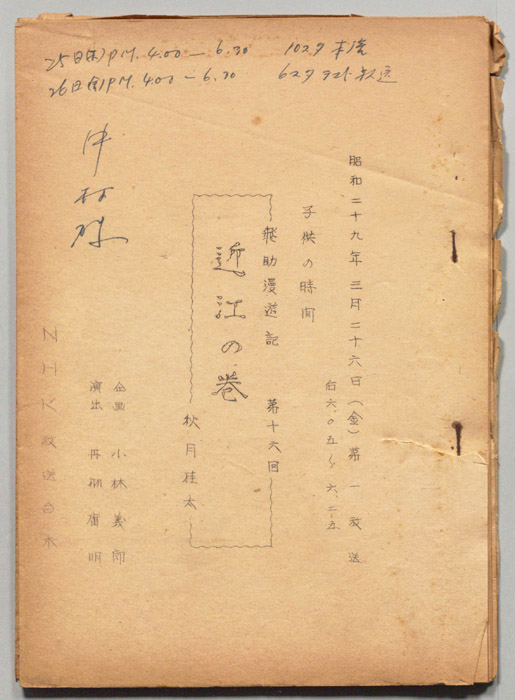 25日(木)PM. 4.00 — 6.30 10スタ 本読
26日(金)PM. 4.00 — 6.30 6スタ テスト 放送
中村様
昭和二十九年三月二十六日(金)第一放送
后六.〇五〜六.二五
子供の時間
飛助漫遊記 第十六回
近江の巻
秋月桂太
企画 小林義郎
演出
NHK放送台本